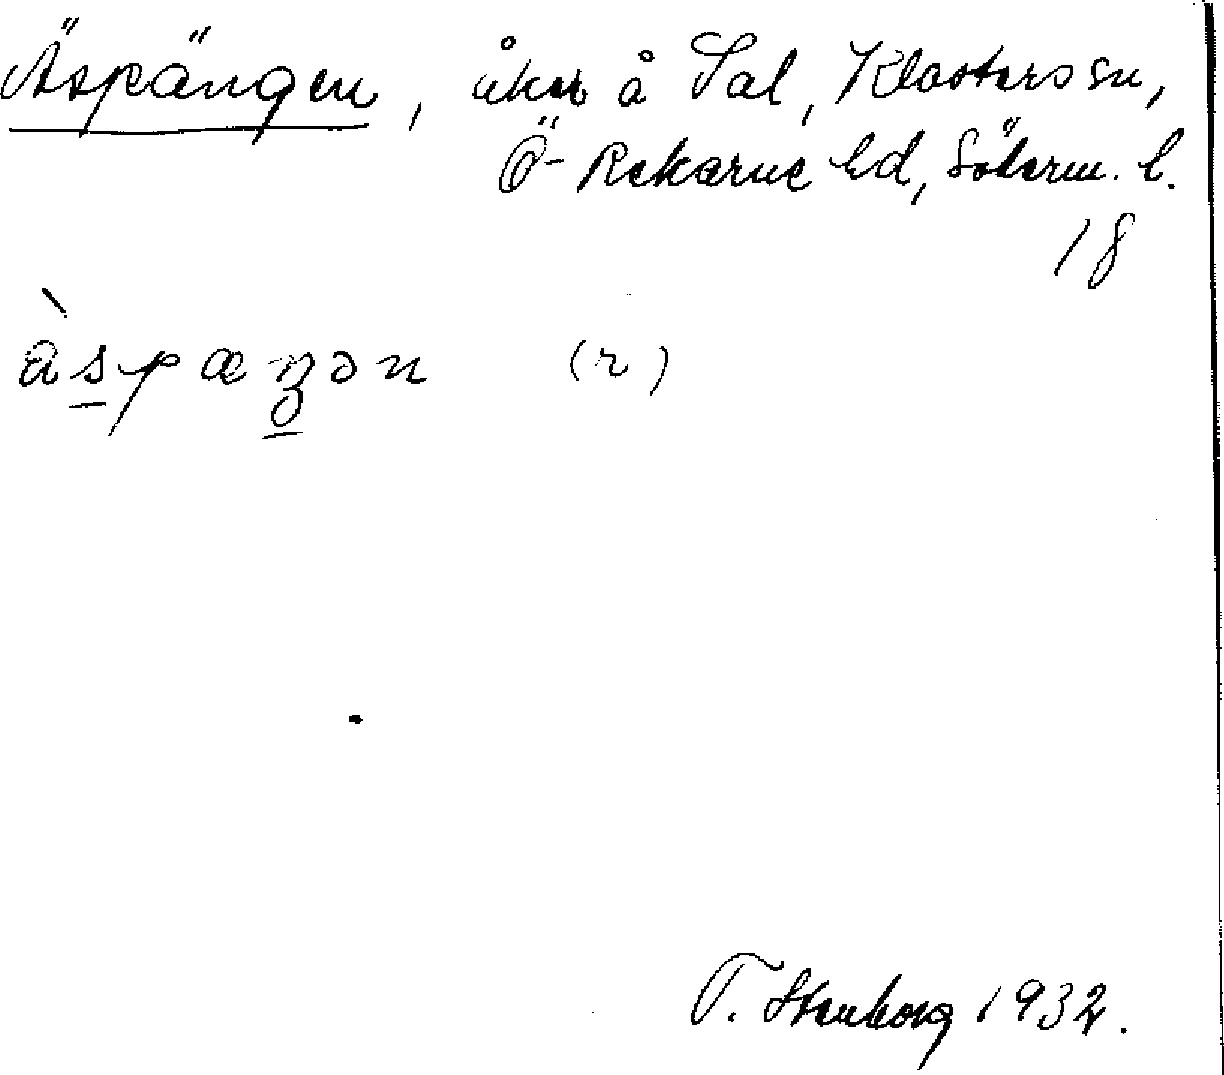 Äspängen, åker å Sal, Klosters sn,
Ö-Rekarne hd, Söderm. l.
18
àspæŋən (r)
T. Stenborg 1932.